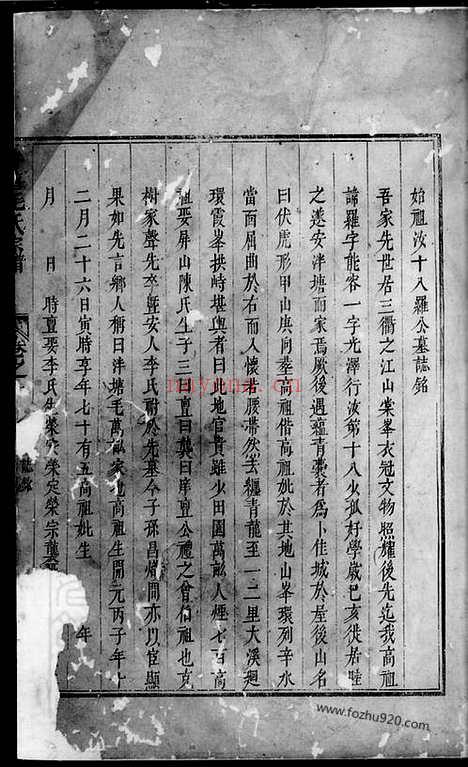 始祖汝十八羅公墓誌銘
吾家先世居三衢之江山棠峯衣冠文物照耀後先迄我高祖
諱羅字能容一字光澤行汝第十八少孤好學歲巳亥徙居睦
之遂安泮塘而家焉厥後遇蘊青囊者為卜佳城於屋後山名
曰伏虎形甲山庚向葬高祖偕高祖妣於其地山峯環列辛水
當面屈曲於右而入懷若腰帶然去纏青龍至一二里大溪廻
環霞峯拱峙堪輿者曰此地官貴雖少田園萬畝人煙七百高
祖娶屏山陳氏生子三曰亶曰龔曰庠亶公禮之曾伯祖也克
樹家聲先卒暨安人李氏祔於先墓今子孫昌熾間亦以宦顯
果如先言鄉人稱曰泮塘毛萬畝家也高祖生開元丙子年十
二月二十六日寅時享年七十有五高祖妣生 年
月 日 時亶娶李氏生榮宂榮定榮宗龔
毛氏宗譜
卷之
誌銘
nayona.cn
www.fozhu920.com